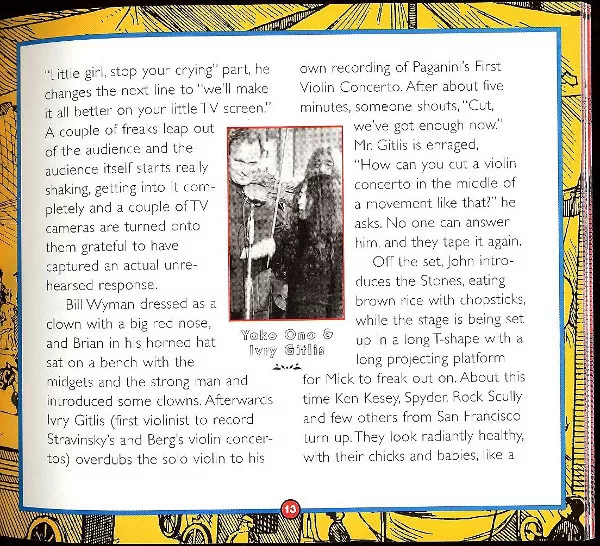 "Little girl, stop your crying" part, he
changes the next line to "we'll make
it all better on your little TV screen."
A couple of freaks leap out
of the audience and the
audience itself starts really
shaking, getting into it com-
pletely and a couple of TV
cameras are turned onto
them grateful to have
captured an actual unre-
hearsed response.
Bill Wyman dressed as a
clown with a big red nose,
and Brian in his horned hat
sat on a bench with the
midgets and the strong man and
introduced some clowns. Afterwards
Ivry Gitlis (first violinist to record
Stravinsky's and Berg's violin concer-
tos) overdubs the solo violin to his
Yoko Ono &
Ivry Gitlis
own recording of Paganini's First
Violin Concerto. After about five
minutes, someone shouts, "Cut,
we've got enough now."
Mr. Gitlis is enraged,
"How can you cut a violin
concerto in the middle of
a movement like that?" he
asks. No one can answer
him, and they tape it again.
Off the set, John intro-
duces the Stones, eating
brown rice with chopsticks,
while the stage is being set
up in a long T-shape with a
long projecting platform
for Mick to freak out on. About this
time Ken Kesey, Spyder, Rock Scully
and few others from San Francisco
turn up. They look radiantly healthy,
with their chicks and babies, like a
13